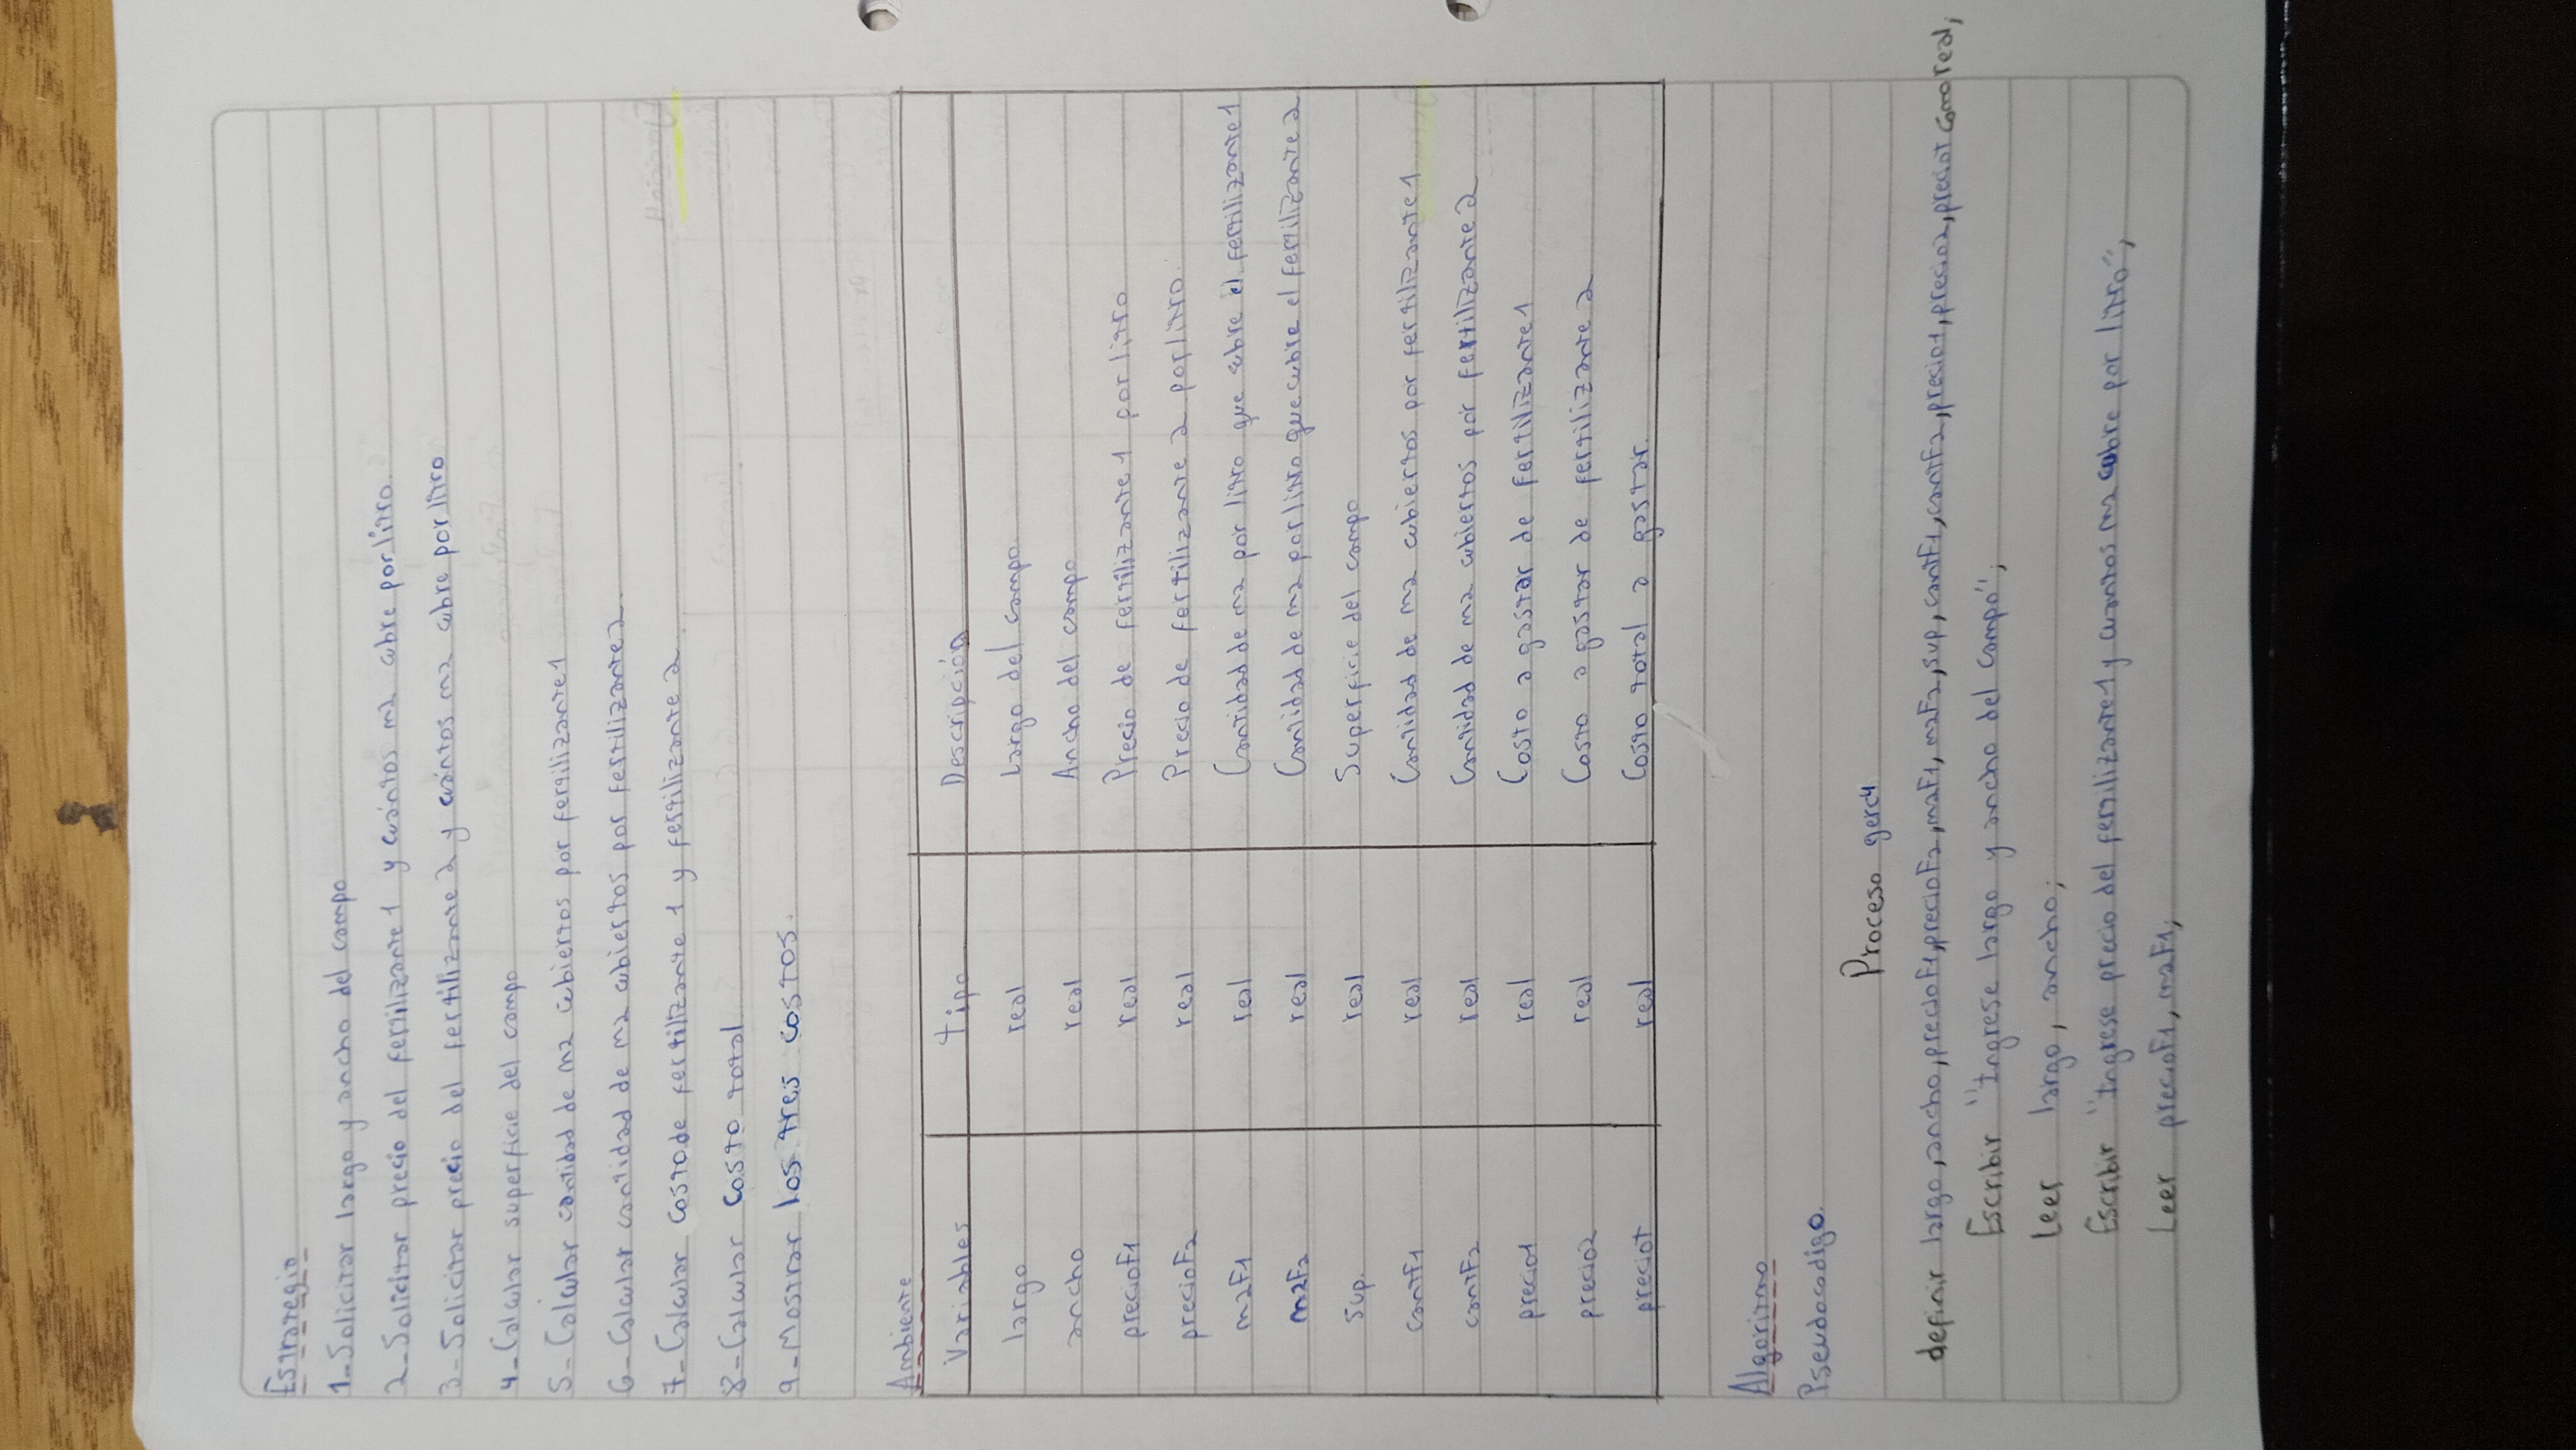 Estrategia
1-Solicitar largo y ancho del campo
2-Solicitar precio del fertilizante 1 y cuántos m2 cubre por litro.
3-Solicitar precio del fertilizante 2 y cuántos m2 cubre por litro
4-Calcular superficie del campo
5-Calcular cantidad de m2 cubiertos por fertilizante 1
6-Calcular cantidad de m2 cubiertos por fertilizante 2.
7-Calcular costo de fertilizante 1 y fertilizante 2.
8-Calcular costo total
9-Mostrar los tres costos.
Ambiente
Variables tipo Descripción
largo real Largo del campo.
ancho real Ancho del campo
precioF1 real Precio de fertilizante 1 por litro
precioF2 real Precio de fertilizante 2 por litro.
m2F1 real Cantidad de m2 por litro que cubre el fertilizante 1
m2F2 real Cantidad de m2 por litro que cubre el fertilizante 2
sup. real Superficie del campo
cantF1 real Cantidad de m2 cubiertos por fertilizante 1
cantF2 real Cantidad de m2 cubiertos por fertilizante 2
precio1 real Costo a gastar de fertilizante 1
precio2 real Costo a gastar de fertilizante 2
preciot real Costo total a gastar.
Algoritmo
Pseudocodigo.
Proceso gerc4
definir largo, ancho, precioF1, precioF2, m2F1, m2F2, sup, cantF1, cantF2, precio1, precio2, preciot como real;
Escribir "Ingrese largo y ancho del campo";
Leer largo, ancho;
Escribir "Ingrese precio del fertilizante 1 y cuantos m2 cubre por litro";
Leer precioF1, m2F1;